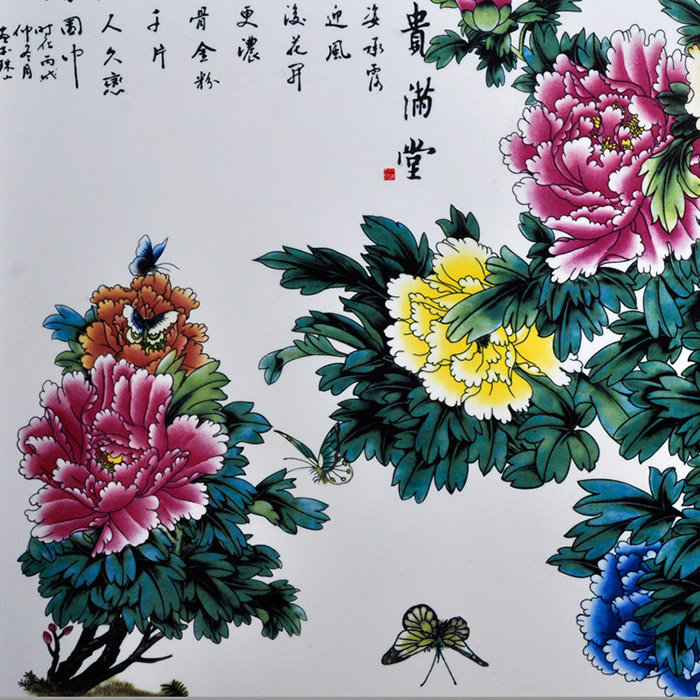 貴滿堂
姿承露
迎風
後花開
更濃
骨金粉
千片
人久戀
園中
時在丙戌
仲冬月